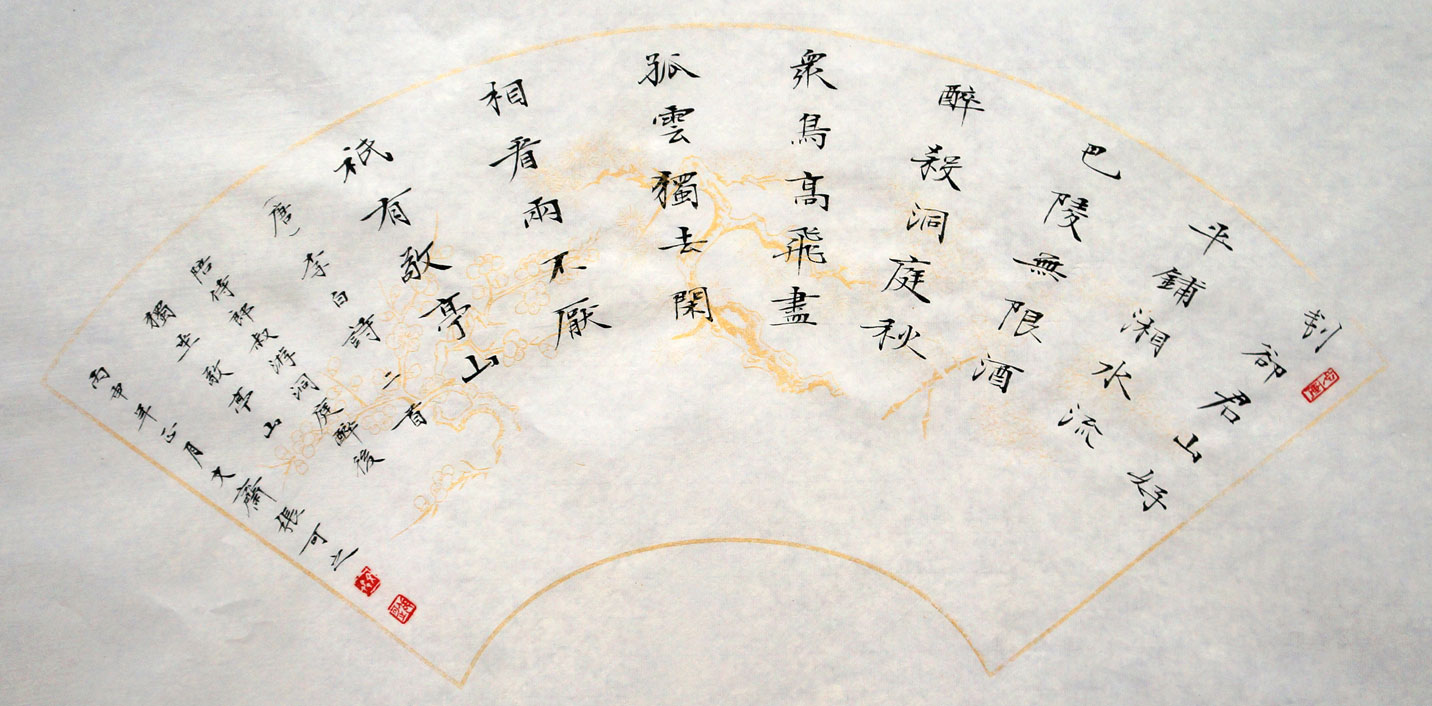 剗卻君山好
平鋪湘水流
巴陵無限酒
醉殺洞庭秋
眾鳥高飛盡
孤雲獨去閑
相看兩不厭
祇有敬亭山
（唐）李白詩二首
陪侍郎叔游洞庭醉後
獨坐敬亭山
丙申年正月文齋張可之